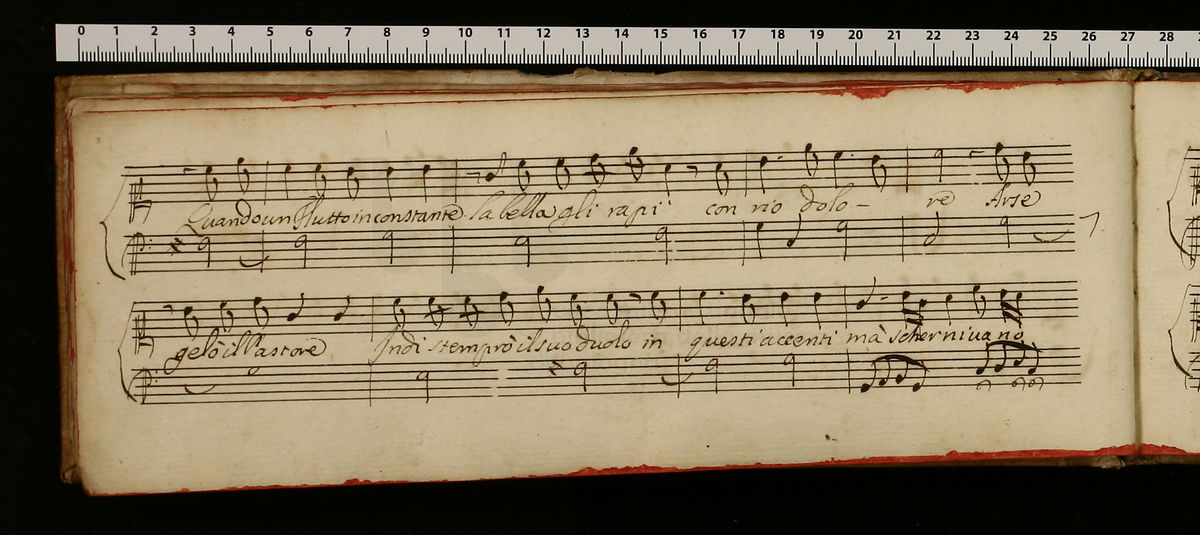 0 1 2 3 4 5 6 7 8 9 10 11 12 13 14 15 16 17 18 19 20 21 22 23 24 25 26 27 28
Quando un flutto inconstante la bella gli rapi' con rio dolo - re Arse
gelò il Pastore Indi stemprò il suo duolo in questi accenti mà schernivano